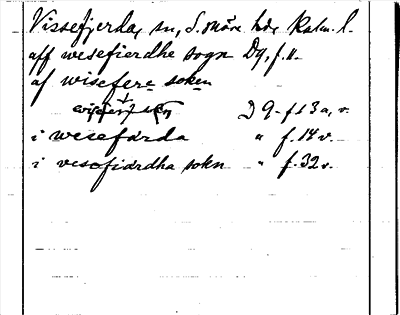 Vissefjerda, sn, S. Möre hd, Kalm. l.
aff wesefierdhe sogn D9, f. 11.
af wisefere soken
D 9 - f 13 a, v.
i wesefärda " f. 14 v.
i vesofiærdha sokn " f. 32 v.